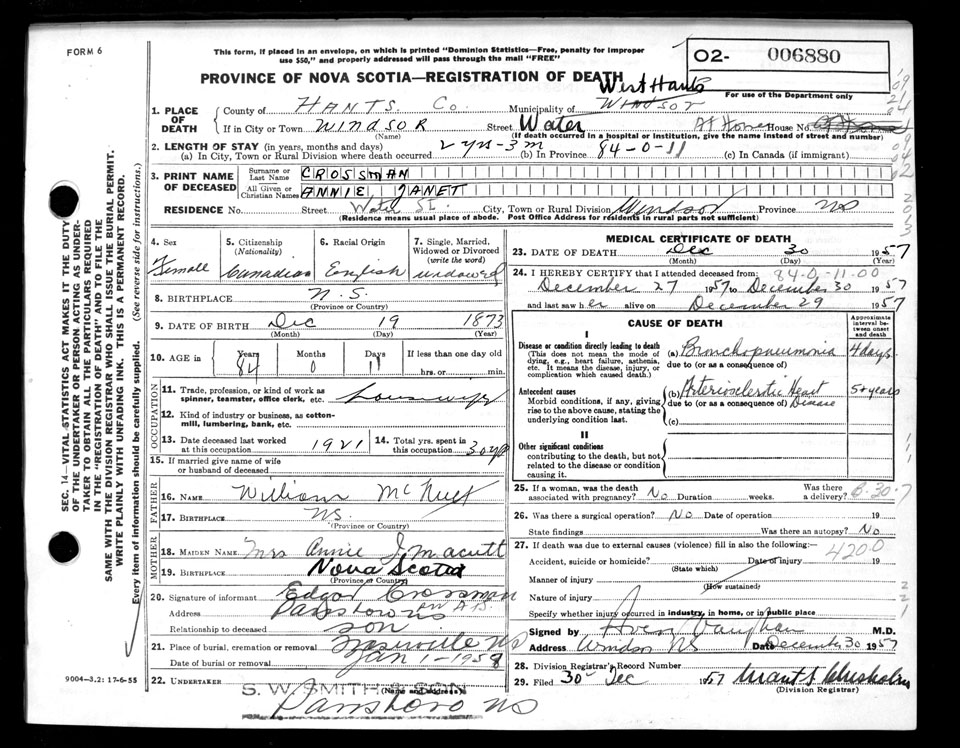 FORM 6
This form, if placed in an envelope, on which is printed "Dominion Statistics—Free, penalty for improper
use $50," and properly addressed will pass through the mail "FREE"
O2- 006880
PROVINCE OF NOVA SCOTIA—REGISTRATION OF DEATH
For use of the Department only
West Hants
1. PLACE OF DEATH
County of HANTS. Co. Municipality of WINDSOR
If in City or Town WINDSOR Street Water At Home House No.
(Name) (If death occurred in a hospital or institution, give the name instead of street and number)
2. LENGTH OF STAY (in years, months and days)
(a) In City, Town or Rural Division where death occurred 2 yrs-3m (b) In Province 84-0-11 (c) In Canada (if immigrant)
3. PRINT NAME OF DECEASED
Surname or Last Name CROSSMAN
All Given or Christian Names ANNIE JANET
RESIDENCE No. Street Water St. City, Town or Rural Division Windsor Province NS
(Residence means usual place of abode. Post Office Address for Residents in rural parts not sufficient)
4. Sex Female
5. Citizenship (Nationality) Canadian
6. Racial Origin English
7. Single, Married, Widowed or Divorced (write the word) widowed
8. BIRTHPLACE N.S.
(Province or Country)
9. DATE OF BIRTH Dec 19 1873
(Month) (Day) (Year)
10. AGE in Years 84 Months 0 Days 11 If less than one day old
hrs. or min.
OCCUPATION
11. Trade, profession, or kind of work as
spinner, teamster, office clerk, etc. housewife
12. Kind of industry or business, as cotton-
mill, lumbering, bank, etc.
13. Date deceased last worked at this occupation 1921
14. Total yrs. spent in this occupation 30 yrs
15. If married give name of wife
or husband of deceased
FATHER
16. NAME William McNutt
17. BIRTHPLACE NS.
(Province or Country)
MOTHER
18. MAIDEN NAME Mrs Annie J.
19. BIRTHPLACE Nova Scotia
(Province or Country)
20. Signature of informant Edgar Crossman
Address Parrsboro NS
Relationship to deceased son
21. Place of burial, cremation or removal NS
Date of burial or removal Jan 1-1958
22. UNDERTAKER S. W. SMITH & SON
(Name and address)
Parrsboro NS
MEDICAL CERTIFICATE OF DEATH
23. DATE OF DEATH Dec 30 1957
(Month) (Day) (Year)
24. I HEREBY CERTIFY that I attended deceased from: 84-0-11-00
December 27 1957 to December 30 1957
and last saw her alive on December 29 1957
CAUSE OF DEATH
Approximate interval between onset and death
I
Disease or condition directly leading to death
(This does not mean the mode of
dying, e.g., heart failure, asthenia,
etc. It means the disease, injury, or
complication which caused death.)
(a) Bronchopneumonia 4 days
due to (or as a consequence of)
Antecedent causes
Morbid conditions, if any, giving
rise to the above cause, stating the
underlying condition last.
(b) Arteriosclerotic Heart Disease 5+ years
due to (or as a consequence of)
(c)
II
Other significant conditions
contributing to the death, but not
related to the disease or condition
causing it.
25. If a woman, was the death
associated with pregnancy? No Duration weeks. Was there
a delivery?
26. Was there a surgical operation? No Date of operation 19
State findings Was there an autopsy? No
27. If death was due to external causes (violence) fill in also the following:—
4200
Accident, suicide or homicide? Date of injury 19
(State which)
Manner of injury
(How sustained)
Nature of injury
Specify whether injury occurred in industry, in home, or in public place
Signed by Vaughan M.D.
Address Windsor NS Date December 30 1957
28. Division Registrar's Record Number
29. Filed 30 Dec 1957
(Division Registrar)
SEC. 14—VITAL STATISTICS ACT MAKES IT THE DUTY
OF THE UNDERTAKER OR PERSON ACTING AS UNDER-
TAKER TO OBTAIN ALL THE PARTICULARS REQUIRED
IN THE "REGISTRATION OF DEATH" AND TO FILE THE
SAME WITH THE DIVISION REGISTRAR WHO SHALL ISSUE THE BURIAL PERMIT.
WRITE PLAINLY WITH UNFADING INK. THIS IS A PERMANENT RECORD.
Every item of information should be carefully supplied. (See reverse side for instructions.)
9004-3,2: 17-6-55